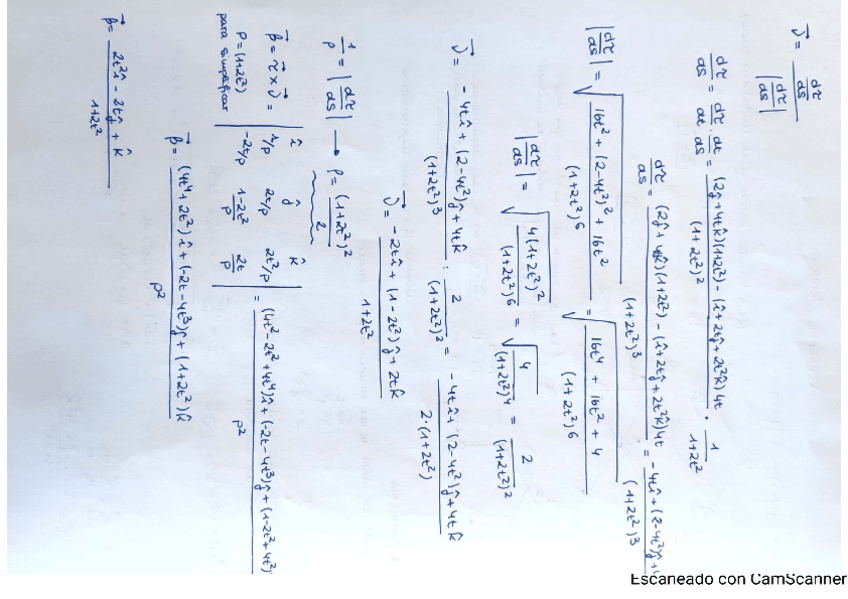 ν⃗ = (dτ/ds) / |dτ/ds|
dτ/ds = dτ/dt · dt/ds = ((2ĵ+4tk̂)(1+2t²) - (î+2tĵ+2t²k̂)4t) / (1+2t²)² · 1/(1+2t²)
dτ/ds = ((2ĵ+4tk̂)(1+2t²) - (î+2tĵ+2t²k̂)4t) / (1+2t²)³ = (-4tî + (2-4t²)ĵ + 4 / (1+2t²)³
|dτ/ds| = √((16t² + (2-4t²)² + 16t²) / (1+2t²)⁶) = √((16t⁴ + 16t² + 4) / (1+2t²)⁶)
|dτ/ds| = √(4(1+2t²)² / (1+2t²)⁶) = √(4 / (1+2t²)⁴) = 2 / (1+2t²)²
ν⃗ = (-4tî + (2-4t²)ĵ + 4tk̂) / (1+2t²)³ : 2 / (1+2t²)² = (-4tî + (2-4t²)ĵ + 4tk̂) / 2·(1+2t²)
ν⃗ = (-2tî + (1-2t²)ĵ + 2tk̂) / 1+2t²
1/ρ = |dτ/ds| → ρ = (1+2t²)² / 2
β⃗ = τ⃗ x ν⃗ = | î ĵ k̂ ; 1/P 2t/P 2t²/P ; -2t/P (1-2t²)/P 2t/P | = ((4t²-2t²+4t⁴)î + (-2t-4t³)ĵ + (1-2t²+4t²) / P²
P=(1+2t²)
para simplificar
β⃗ = ((4t⁴+2t²)î + (-2t-4t³)ĵ + (1+2t²)k̂) / P²
β⃗ = (2t²î - 2tĵ + k̂) / 1+2t²
Escaneado con CamScanner